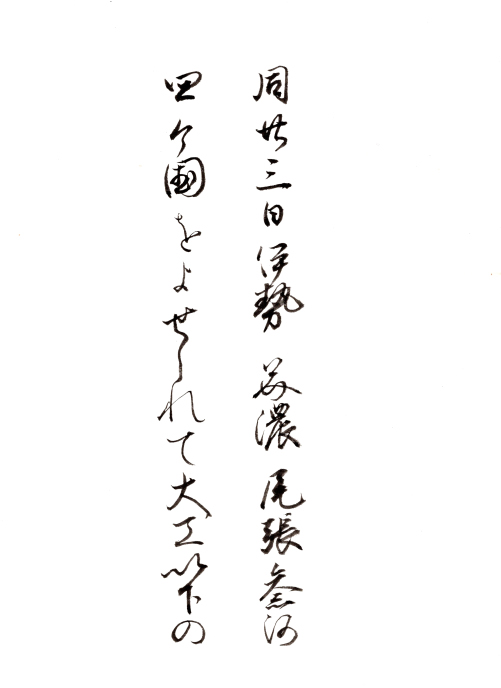 同廿三日伊勢美濃尾張参河
四ケ國をよせられて大工以下の